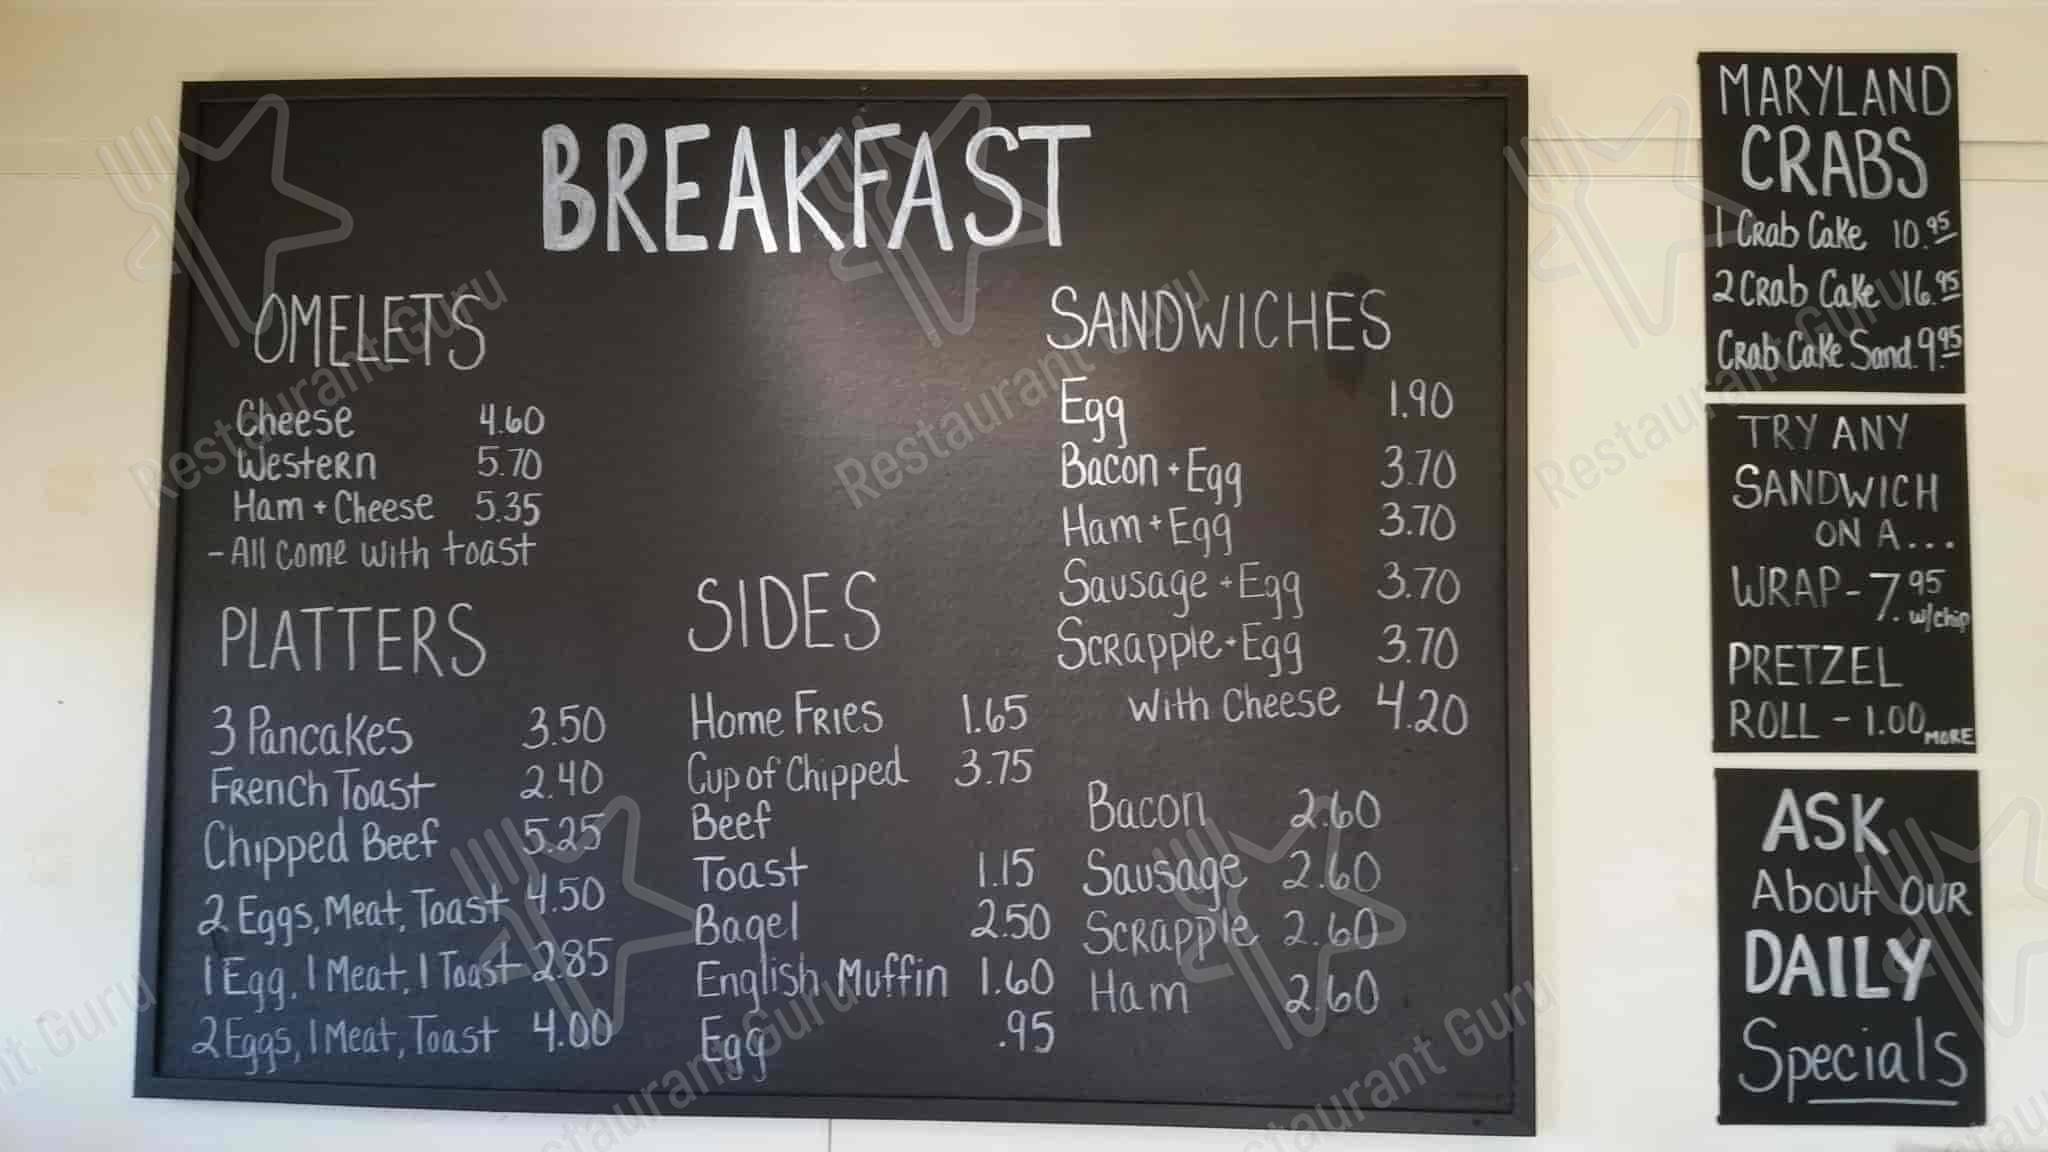 BREAKFAST
OMELETS
Cheese 4.60
Western 5.70
Ham + Cheese 5.35
- All come with toast
PLATTERS
3 Pancakes 3.50
French Toast 2.40
Chipped Beef 5.25
2 Eggs, Meat, Toast 4.50
1 Egg, 1 Meat, 1 Toast 2.85
2 Eggs, 1 Meat, Toast 4.00
SIDES
Home Fries 1.65
Cup of Chipped 3.75
Beef
Toast 1.15
Bagel 2.50
English Muffin 1.60
Egg .95
SANDWICHES
Egg 1.90
Bacon + Egg 3.70
Ham + Egg 3.70
Sausage + Egg 3.70
Scrapple + Egg 3.70
With Cheese 4.20
Bacon 2.60
Sausage 2.60
Scrapple 2.60
Ham 2.60
MARYLAND
CRABS
1 Crab Cake 10.95
2 Crab Cake 16.95
Crab Cake Sand. 9.95
TRY ANY
SANDWICH
ON A...
WRAP - 7.95
w/chip
PRETZEL
ROLL - 1.00 MORE
ASK
About OUR
DAILY
Specials
Restaurant Guru
Restaurant Guru
Restaurant Guru
Restaurant Guru
Restaurant Guru